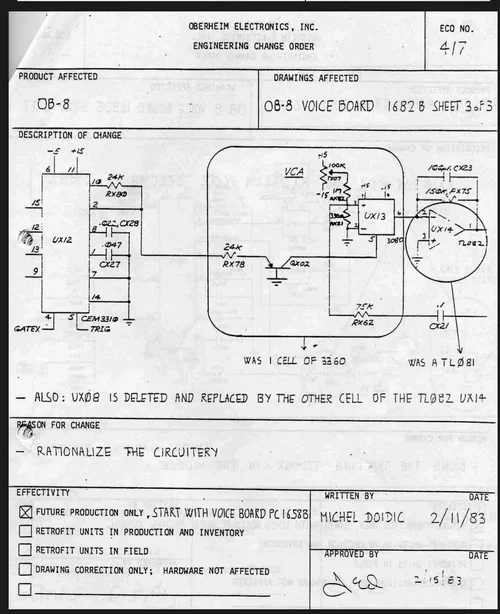 OBERHEIM ELECTRONICS, INC.
ENGINEERING CHANGE ORDER
ECO NO.
417
PRODUCT AFFECTED
OB-8
DRAWINGS AFFECTED
OB-8 VOICE BOARD 1682B SHEET 3 OF 3
DESCRIPTION OF CHANGE
-5 +15
6 11
10 24K
RX80
2
15
12
8 .022, CX28
UX12
13
1 .047
CX27
9
7
14
4 5 CEM3310
GATEX TRIG
24K
RX78
QX02
VCA
+15
100K
-15
+15 -15
UX13
5
6
3080
75K
RX62
.1
CX21
100pf, CX23
150K, RX75
UX14
TL082
WAS 1 CELL OF 3360
WAS A TL081
— ALSO: UX08 IS DELETED AND REPLACED BY THE OTHER CELL OF THE TL082 UX14
REASON FOR CHANGE
— RATIONALIZE THE CIRCUITERY
EFFECTIVITY
FUTURE PRODUCTION ONLY, START WITH VOICE BOARD PC1658B
RETROFIT UNITS IN PRODUCTION AND INVENTORY
RETROFIT UNITS IN FIELD
DRAWING CORRECTION ONLY; HARDWARE NOT AFFECTED
WRITTEN BY DATE
MICHEL DOIDIC 2/11/83
APPROVED BY DATE
2/15/83